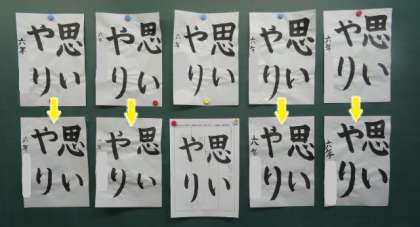 思い
やり
六年
思い
やり
六年
思い
やり
思い
やり
六年
思い
やり
六年
思い
やり
六年
思い
やり
思い
やり
思い
やり
六年
思い
やり
六年